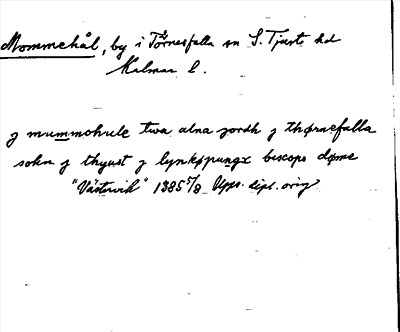 Mommehål, by i Törnesfalla sn S. Tjusts hd
Kalmar l.
j mummohule twa alna jordh j thørnefalla
sokn j thyust j lynkøpungx biscops døme
"Västervik" 1385 5/8 Upps. dipl. orig